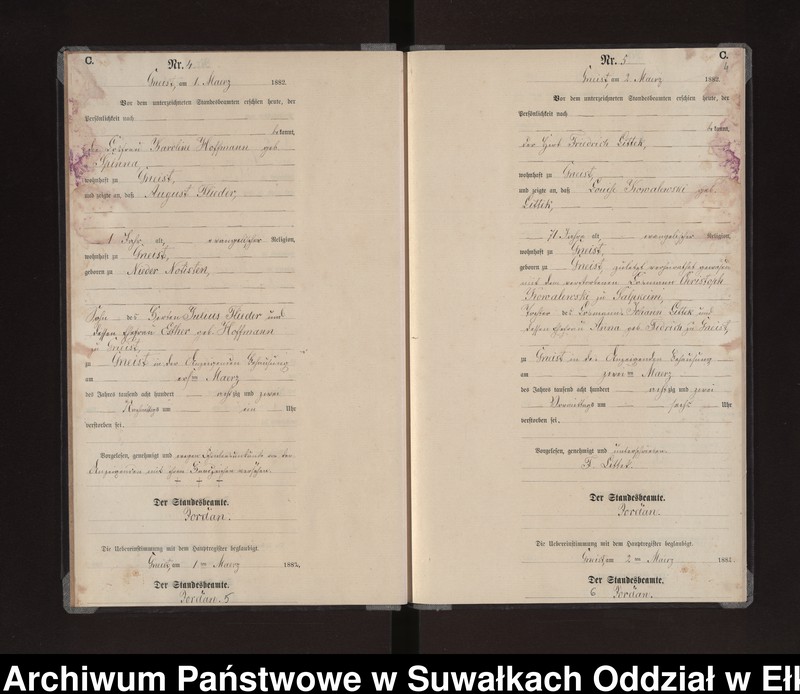 C.
Nr. 4
Gneist, am 1. Maerz 1882.
Vor dem unterzeichneten Standesbeamten erschien heute, der
Persönlichkeit nach
bekannt,
die Losfrau Karoline Hoffmann geb.
wohnhaft zu Gneist,
und zeigte an, daß August Flieder,
1 Jahr alt, evangelischer Religion,
wohnhaft zu Gneist,
geboren zu Nieder Notisten,
Sohn des Julius Flieder und
dessen Ehefrau Esther geb. Hoffmann
zu Gneist,
zu Gneist in der Anzeigenden Behausung
am ersten Maerz
des Jahres tausend acht hundert achtzig und zwei
Nachmittags um ein Uhr
verstorben sei.
Vorgelesen, genehmigt und wegen Schreibensunkunde von der
Anzeigenden mit ihrem Handzeichen versehen.
+ + +
Der Standesbeamte.
Jordan.
Die Uebereinstimmung mit dem Hauptregister beglaubigt.
Gneist, am 1ten Maerz 1882.
Der Standesbeamte.
Jordan. 5
C.
4
Nr. 5
Gneist, am 2. Maerz 1882.
Vor dem unterzeichneten Standesbeamten erschien heute, der
Persönlichkeit nach
bekannt,
der Wirt Friedrich Littek,
wohnhaft zu Gneist,
und zeigte an, daß Louise Kowalewski geb.
Littek,
71 Jahre alt, evangelischer Religion,
wohnhaft zu Gneist,
geboren zu Gneist, zuletzt verheirathet gewesen
mit dem verstorbenen Losmann Christoph
Kowalewski zu
Tochter des Losmanns Johann Littek und
dessen Ehefrau Anna geb. Fidrich zu Gneist,
zu Gneist in des Anzeigenden Behausung
am zweiten Maerz
des Jahres tausend acht hundert achtzig und zwei
Vormittags um sechs Uhr
verstorben sei.
Vorgelesen, genehmigt und unterschrieben
F. Littek.
Der Standesbeamte.
Jordan.
Die Uebereinstimmung mit dem Hauptregister beglaubigt.
Gneist, am 2ten Maerz 1882
Der Standesbeamte.
6 Jordan.
Archiwum Państwowe w Suwałkach Oddział w Eł